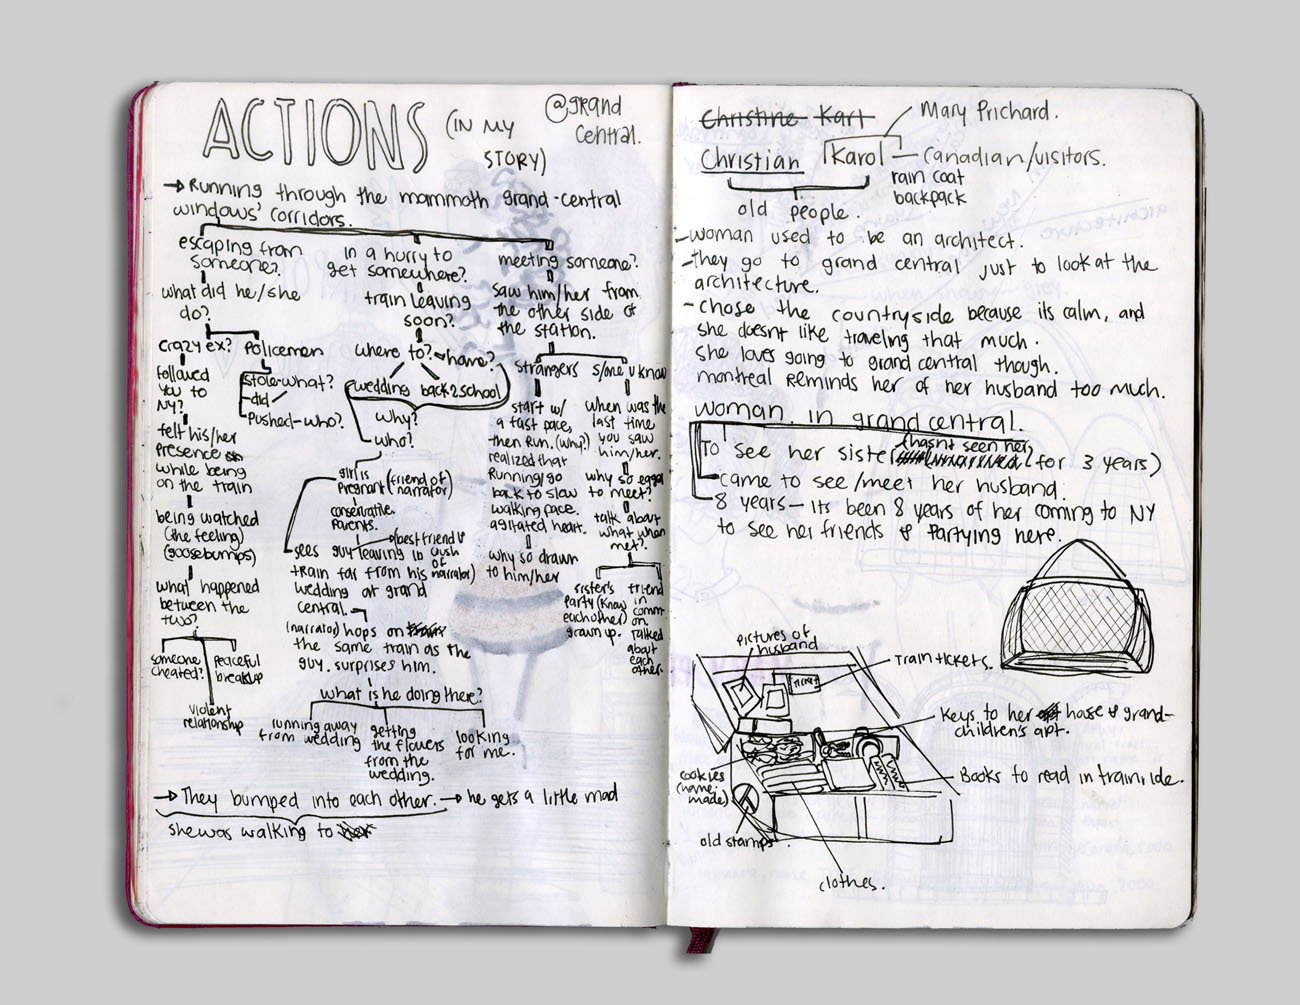 ACTIONS (IN MY STORY) @grand central.
→ Running through the mammoth grand-central
windows' corridors.
escaping from
someone?
what did he/she
do?
crazy ex?
followed
you to
NY?
felt his/her
presence
while being
on the train
being watched
(the feeling)
(goosebumps)
what happened
between the
two?
someone
cheated?
violent
relationship
peaceful
breakup
Policemen
stole-what?
did
pushed-who?
in a hurry to
get somewhere?
train leaving
soon?
where to?
home?
wedding
back2school
why?
who?
girl is
pregnant
(friend of
narrator)
conservative
parents.
sees guy leaving in
(best friend &
crush
of
narrator)
train far from his
wedding at grand
central.
(narrator) hops on
the same train as the
guy. surprises him.
what is he doing there?
running away
from wedding
getting
the flowers
from the
wedding.
looking
for me.
meeting someone?
saw him/her from
the other side of
the station.
strangers
start w/
a fast pace,
then run. (why?)
realized that
Running/go
back to slow
walking pace.
agitated heart.
why so drawn
to him/her
s/one u know
when was the
last time
you saw
him/her.
why so eager
to meet?
talk about
what when
met?
sister's
party (know
each other)
grown up.
friend
in
comm-
on
talked
about
each
other.
→ They bumped into each other. → he gets a little mad
she was walking to
Christine Kart
Mary Prichard.
Christian Karol — Canadian/visitors.
rain coat
backpack
old people.
- woman used to be an architect.
- they go to grand central just to look at the
architecture.
- chose the countryside because its calm, and
she doesnt like traveling that much.
she loves going to grand central though.
montreal reminds her of her husband too much.
woman in grand central.
To see her sister (hasnt seen her for 3 years)
came to see/meet her husband.
8 years — its been 8 years of her coming to NY
to see her friends & Partying here.
pictures of
husband
Train tickets.
TICKET
Keys to her house & grand-
children's apt.
Books to read in train ride.
cookies
(home
made)
old stamps.
clothes.